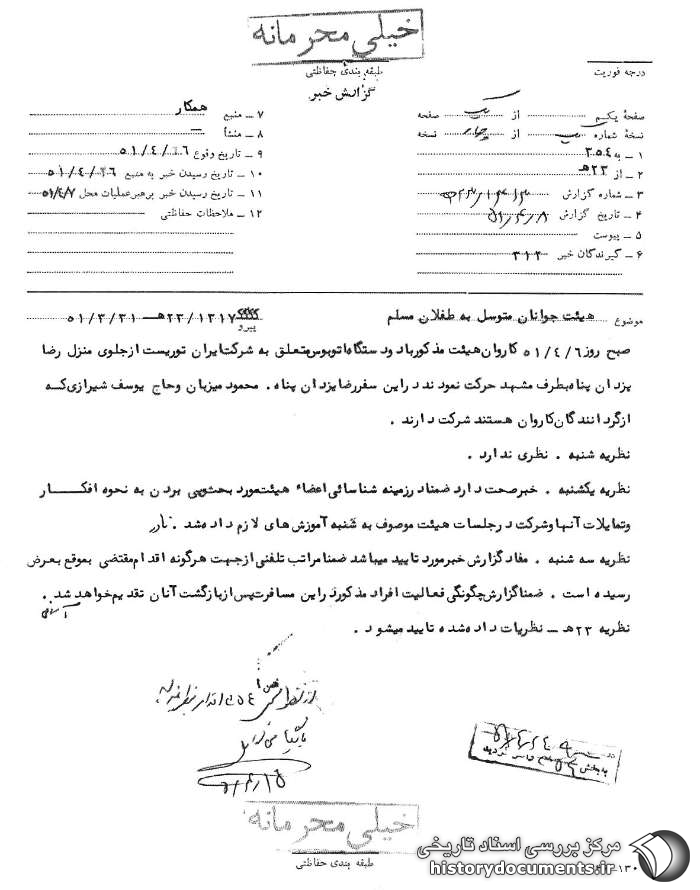 خیلی محرمانه
طبقه بندی حفاظتی
درجه فوریت
گزارش خبر
صفحهٔ یکم از یک صفحه
نسخهٔ شماره یک از چهار نسخه
۱ ـ به ۳۵۴
۲ ـ از ۲۳هـ
۳ ـ شماره گزارش
۴ ـ تاریخ گزارش ۵۱/۴/۸
۵ ـ پیوست
۶ ـ گیرندگان خبر ۳۱۲
۷ ـ منبع همکار
۸ ـ منشأ ـ
۹ ـ تاریخ وقوع ۵۱/۴/۶
۱۰ ـ تاریخ رسیدن خبر به منبع ۵۱/۴/۶
۱۱ ـ تاریخ رسیدن خبر برهبر عملیات محل ۵۱/۴/۷
۱۲ ـ ملاحظات حفاظتی
موضوع هیئت جوانان متوسل به طفلان مسلم
پیرو ۲۳/۱۲۱۷هـ ـ ۵۱/۳/۳۱
صبح روز ۵۱/۴/۶ کاروان هیئت مذکور با دو دستگاه اتوبوس متعلق به شرکت ایران توریست از جلوی منزل رضا
یزدان پناه بطرف مشهد حرکت نمودند در این سفر رضا یزدان پناه . محمود میزبان و حاج یوسف شیرازی که
از گردانندگان کاروان هستند شرکت دارند .
نظریه شنبه . نظری ندارد .
نظریه یکشنبه . خبر صحت دارد ضمناً در زمینه شناسائی اعضاء هیئت مورد بحث و پی بردن به نحوه افکار
و تمایلات آنها و شرکت در جلسات هیئت موصوف به شنبه آموزش های لازم داده شد . نادر
نظریه سه شنبه . مفاد گزارش خبر مورد تایید میباشد ضمنا مراتب تلفنی از جهت هرگونه اقدام مقتضی بموقع بعرض
رسیده است . ضمنا گزارش چگونگی فعالیت افراد مذکور در این مسافرت پس از بازگشت آنان تقدیم خواهد شد .
نظریه ۲۳هـ ـ نظریات داده شده تایید میشود .
خیلی محرمانه
طبقه بندی حفاظتی
مرکز بررسی اسناد تاریخی
historydocuments.ir